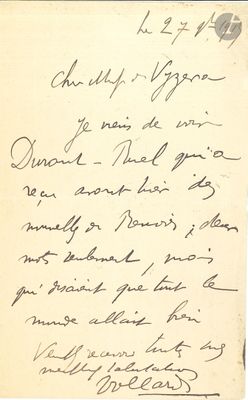 Le 27 9bre 1919
Cher M. de Wyzewa
Je viens de voir
Durand-Ruel qui a
reçu avant hier des
nouvelles de Renoir, deux
mots seulement, mais
qui disaient que tout le
monde allait bien
Veuillez recevoir toutes mes
meilleures salutations
Vollard